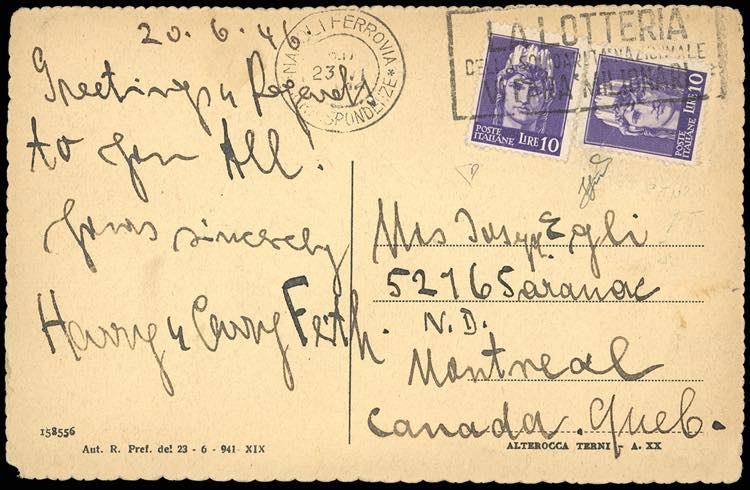 20. 6. 46
Greetings u Regards
to you All!
yours sincerely
Harry u Carry Feith.
NAPOLI FERROVIA
23
CORRISPONDENZE *
LA LOTTERIA
DELLA SOLIDARIETA NAZIONALE
MILIONARI
POSTE ITALIANE LIRE 10
POSTE ITALIANE LIRE 10
Mrs Egli
5276 Saranac
N. D.
Montreal
Canada. Queb.
158556
Aut. R. Pref. del 23 - 6 - 941 - XIX
ALTEROCCA TERNI - A. XX